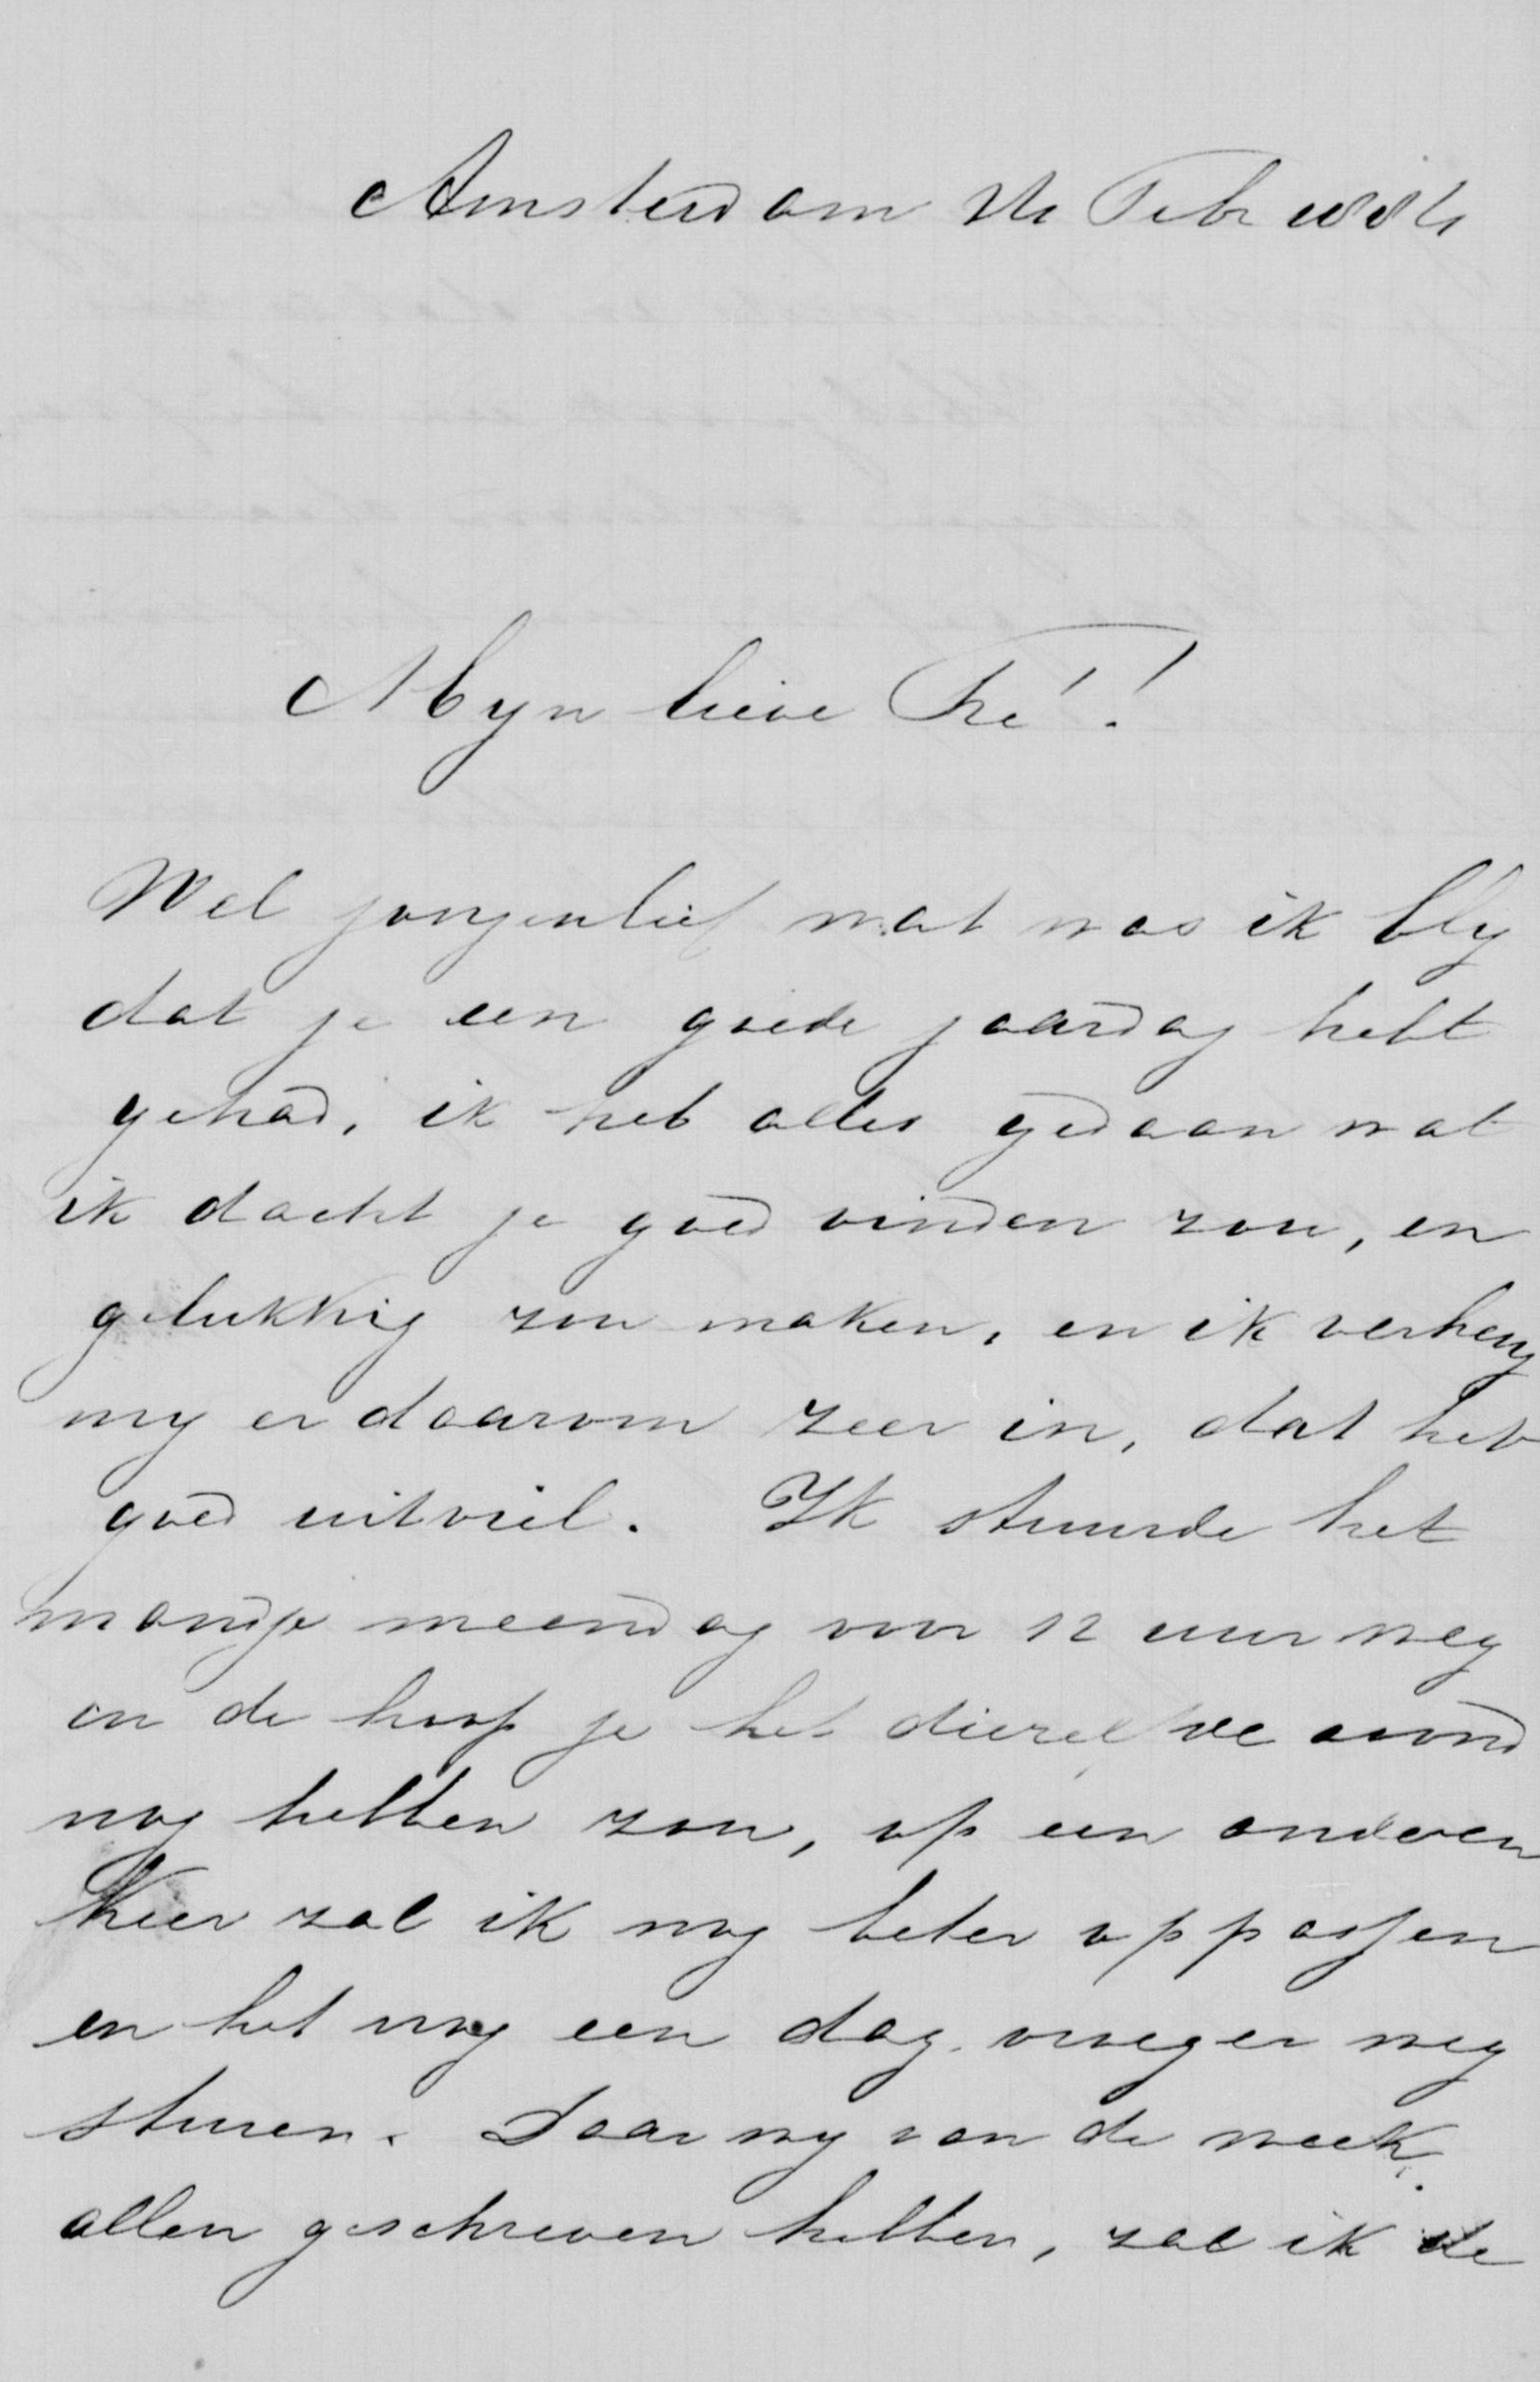 Amsterdam Febr
Myn lieve Fré!
Wel jongenlief wat was ik bly
dat je een goede jaardag hebt
gehad, ik heb alles gedaan wat
ik dacht je goed vinden zou, en
gelukkig zou maken, en ik verheug
my er daarom zeer in, dat het
goed uitviel. Ik stuurde het
mandje maandag voor 12 uur weg
in de hoop je het diezelfde avond
nog hebben zou, op een anderen
keer zal ik nog beter oppassen
en het nog een dag vroeger weg
sturen. Daar wy van de week
allen geschreven hebben, zal ik de